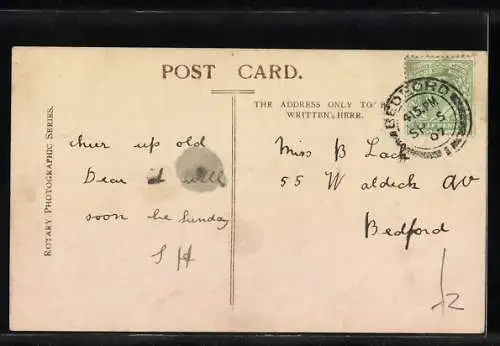 POST CARD.
THE ADDRESS ONLY TO B
WRITTEN HERE.
ROTARY PHOTOGRAPHIC SERIES.
BEDFORD
4.15 PM
SP 5
07
cheer up old
Dear it will
soon be Sunday
S H
Miss B Lack
55 Waldeck av
Bedford
/2